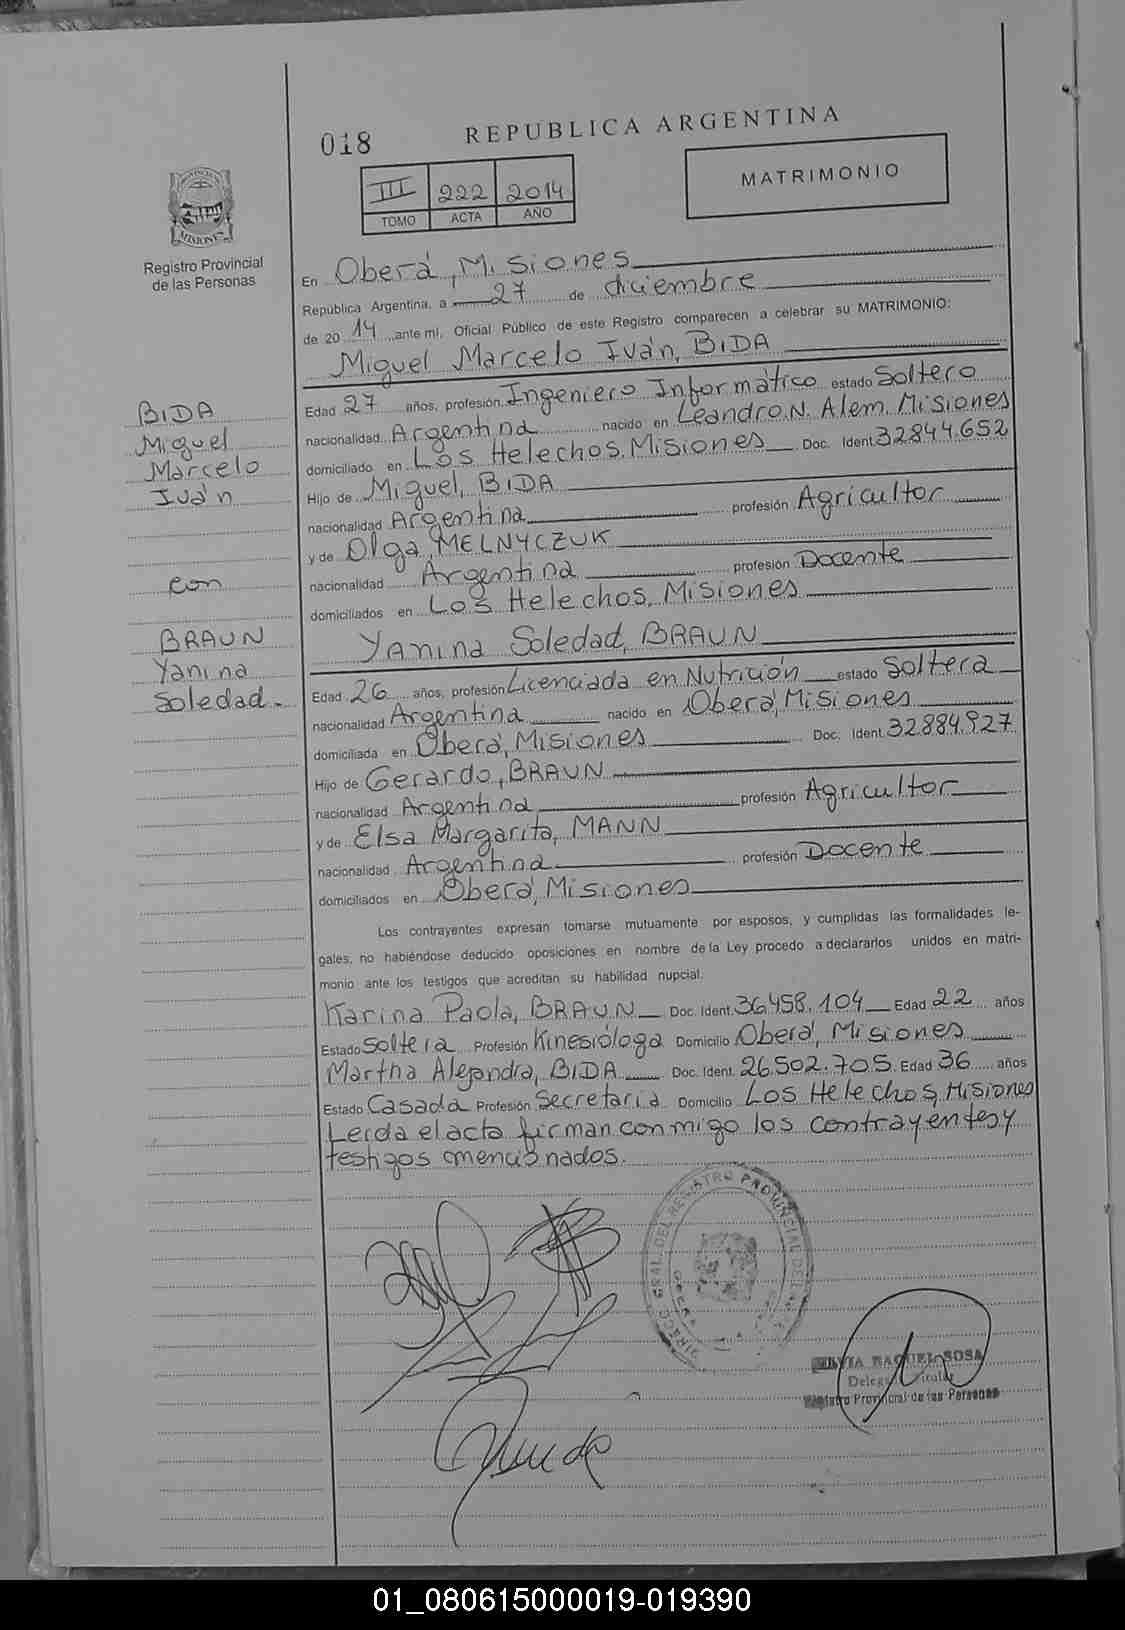 018
REPUBLICA ARGENTINA
III 222 2014
TOMO ACTA AÑO
MATRIMONIO
MISIONES
Registro Provincial
de las Personas
En Oberá, Misiones
República Argentina, a 27 de diciembre
de 20 14 ante mí, Oficial Público de este Registro comparecen a celebrar su MATRIMONIO:
Miguel Marcelo Iván, BIDA
Edad 27 años, profesión Ingeniero Informático estado Soltero
nacionalidad Argentina nacido en Leandro N. Alem. Misiones
domiciliado en Los Helechos. Misiones Doc. Ident 32.844.652
Hijo de Miguel, BIDA
nacionalidad Argentina profesión Agricultor
y de Olga, MELNYCZUK
nacionalidad Argentina profesión Docente
domiciliados en Los Helechos, Misiones
Yanina Soledad, BRAUN
Edad 26 años, profesión Licenciada en Nutrición estado Soltera
nacionalidad Argentina nacido en Oberá, Misiones
domiciliada en Oberá, Misiones Doc. Ident. 32.884.927
Hijo de Gerardo, BRAUN
nacionalidad Argentina profesión Agricultor
y de Elsa Margarita, MANN
nacionalidad Argentina profesión Docente
domiciliados en Oberá, Misiones
Los contrayentes expresan tomarse mutuamente por esposos, y cumplidas las formalidades le-
gales, no habiéndose deducido oposiciones en nombre de la Ley procedo a declararlos unidos en matri-
monio ante los testigos que acreditan su habilidad nupcial.
Karina Paola, BRAUN Doc. Ident. 36.458.104 Edad 22 años
Estado Soltera Profesión Kinesióloga Domicilio Oberá, Misiones
Martha Alejandra, BIDA Doc. Ident. 26.502.705 Edad 36 años
Estado Casada Profesión Secretaria Domicilio Los Helechos, Misiones
Leida el acta firman conmigo los contrayentes y
testigos menciónados.
BIDA
Miguel
Marcelo
Iván
con
BRAUN
Yanina
Soledad.
GRAL. DEL REGISTRO PROVINCIAL DE
RAQUEL SOSA
Registro Provincial de las Personas
01_080615000019-019390